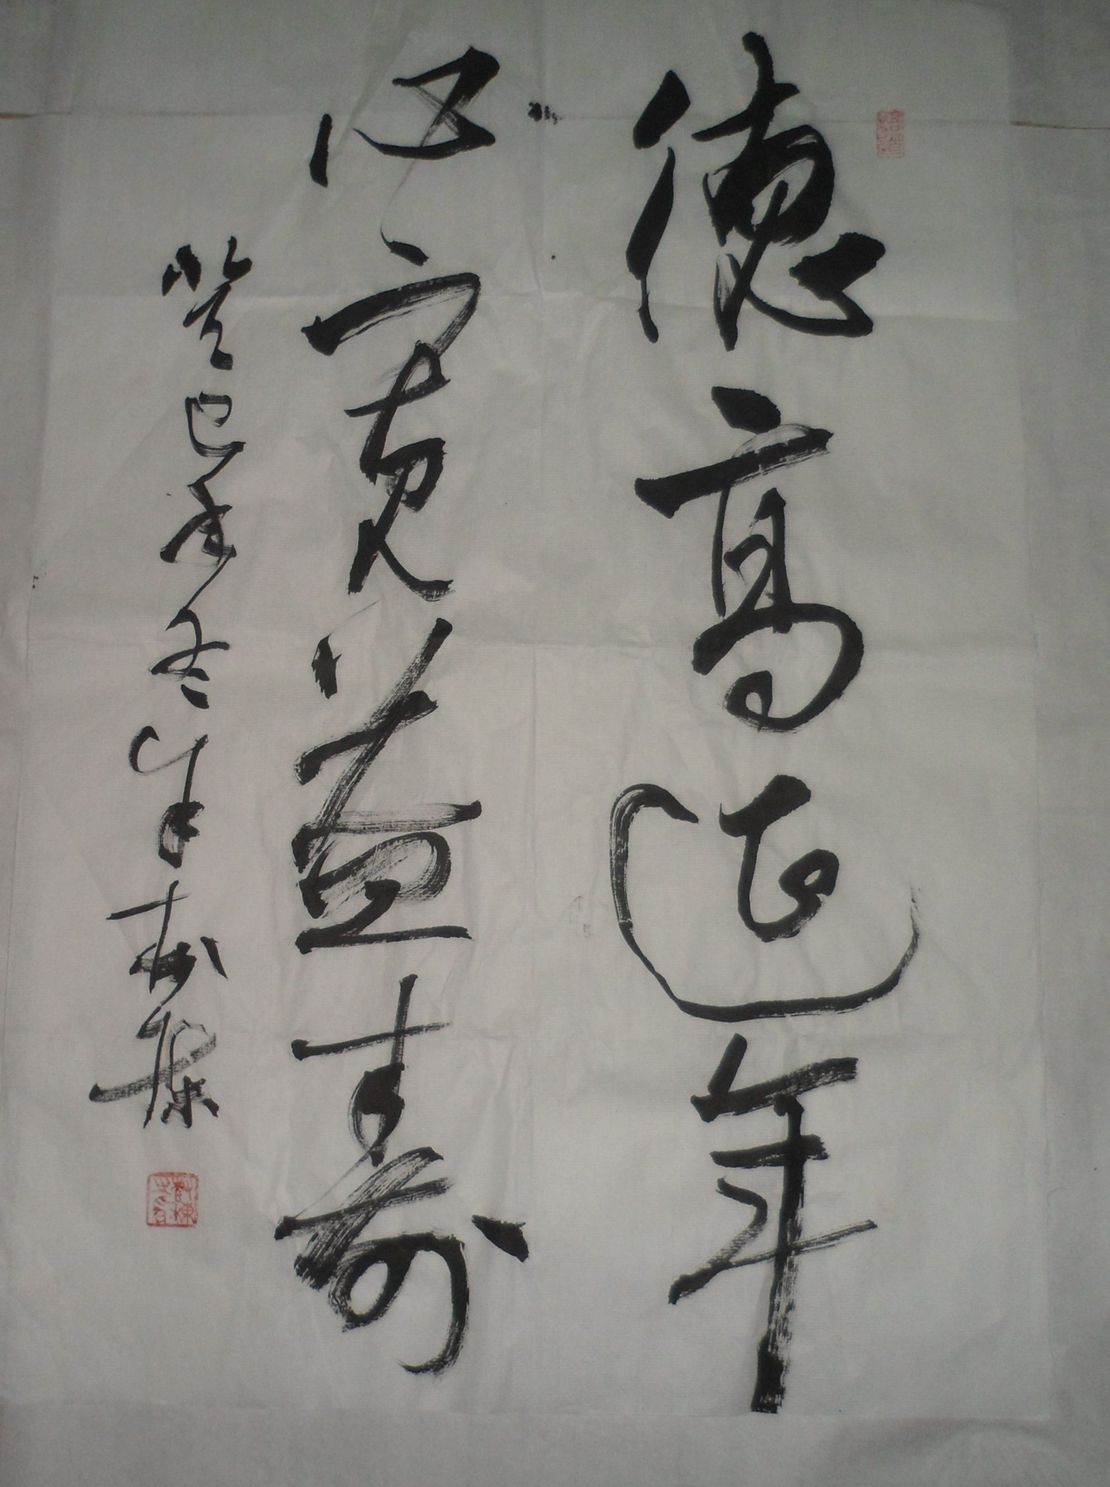 德高延年
心宽益寿
癸巳年冬